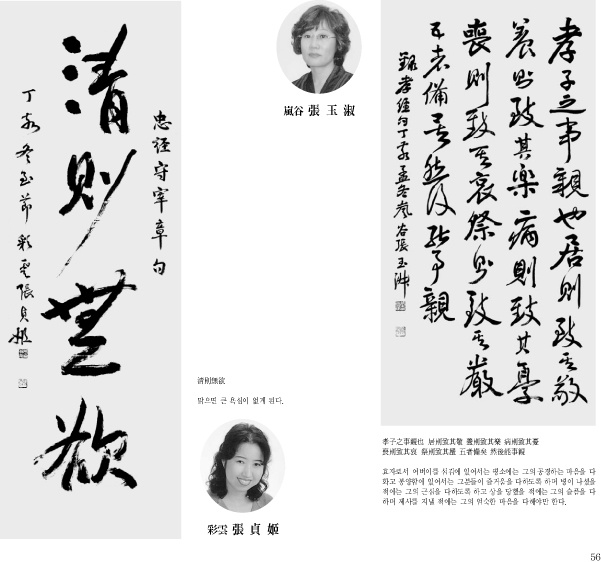 忠經守宰章句
清則無欲
丁亥冬至節 彩雲張貞姬
嵐谷 張玉淑
清則無欲
맑으면 큰 욕심이 없게 된다.
彩雲 張貞姬
孝子之事親也居則致其敬
養則致其樂病則致其憂
喪則致其哀祭則致其嚴
五者備矣然後能事親
錄孝經句丁亥孟冬嵐谷張玉淑
孝子之事親也 居則致其敬 養則致其樂 病則致其憂
喪則致其哀 祭則致其嚴 五者備矣 然後能事親
효자로서 어버이를 섬김에 있어서는 평소에는 그의 공경하는 마음을 다
하고 봉양함에 있어서는 그분들이 즐거움을 다하도록 하며 병이 나셨을
적에는 그의 근심을 다하도록 하고 상을 당했을 적에는 그의 슬픔을 다
하며 제사를 지낼 적에는 그의 엄숙한 마음을 다해야만 한다.
56